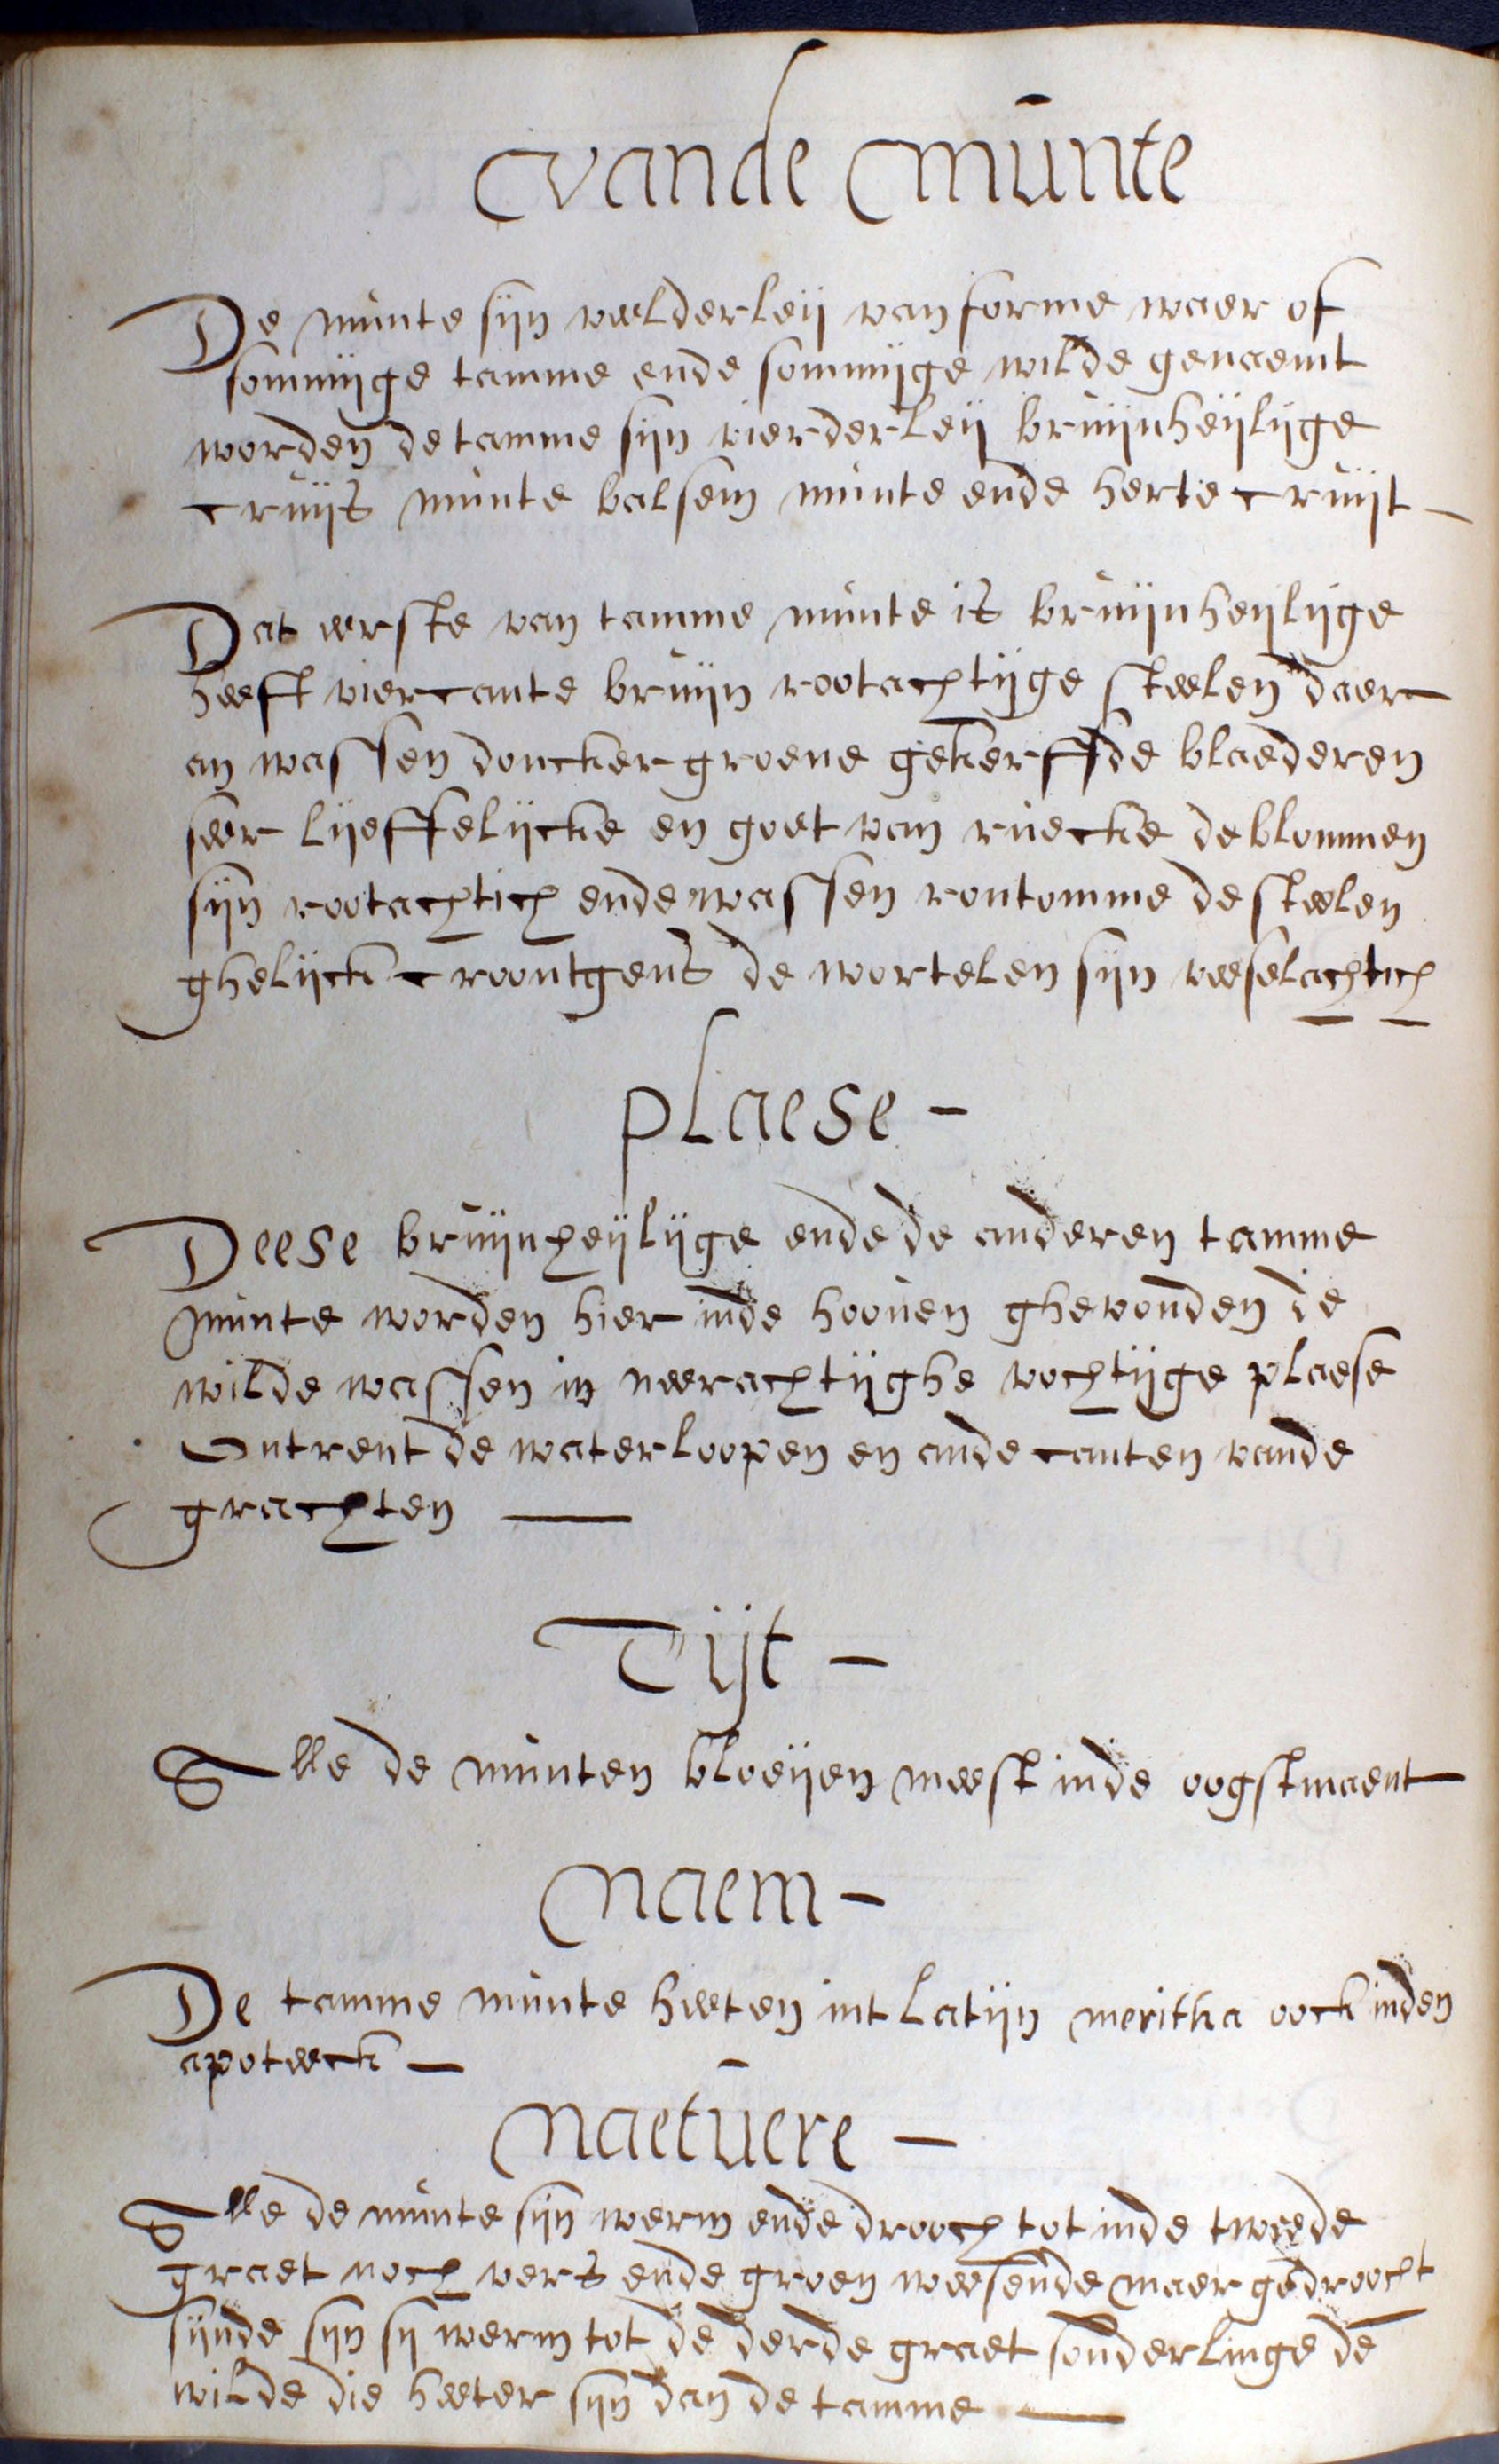 vande munte
De munte sijn veelderleij van forme waer of
sommijge tamme ende sommijge wilde genaemt
worden de tamme sijn vierderleij bruijnheijlijge
cruijs munte balsem munte ende herte cruijt -
Dat eerste van tamme munte is bruijnheijlijge
heeft viercante bruijn rootachtijge steelen daer
an wassen doncker groene gekerffde blaederen
seer lijeffelijcke en goet van ruecke de blommen
sijn rootachtich ende wassen rontomme de steelen
ghelijck croontgens de wortelen sijn veeselachtich
plaese -
Deese bruijnheijlijge ende de anderen tamme
munte worden hier inde hooven ghevonden de
wilde wassen in neerachtijghe vochtijge plaese
Ontrent de waterloopen en ande canten vande
grachten —
Tijt -
Alle de munten bloeijen meest inde oogstmaent
naem -
De tamme munte heeten int Latijn meritha oock inden
apoteeck -
naetuere -
Alle de munte sijn werm ende drooch tot inde tweede
graet noch vers ende groen weesende maer gedroocht
sijnde sijn sij werm tot de derde graet sonderlinge de
wilde die heeter sijn dan de tamme —